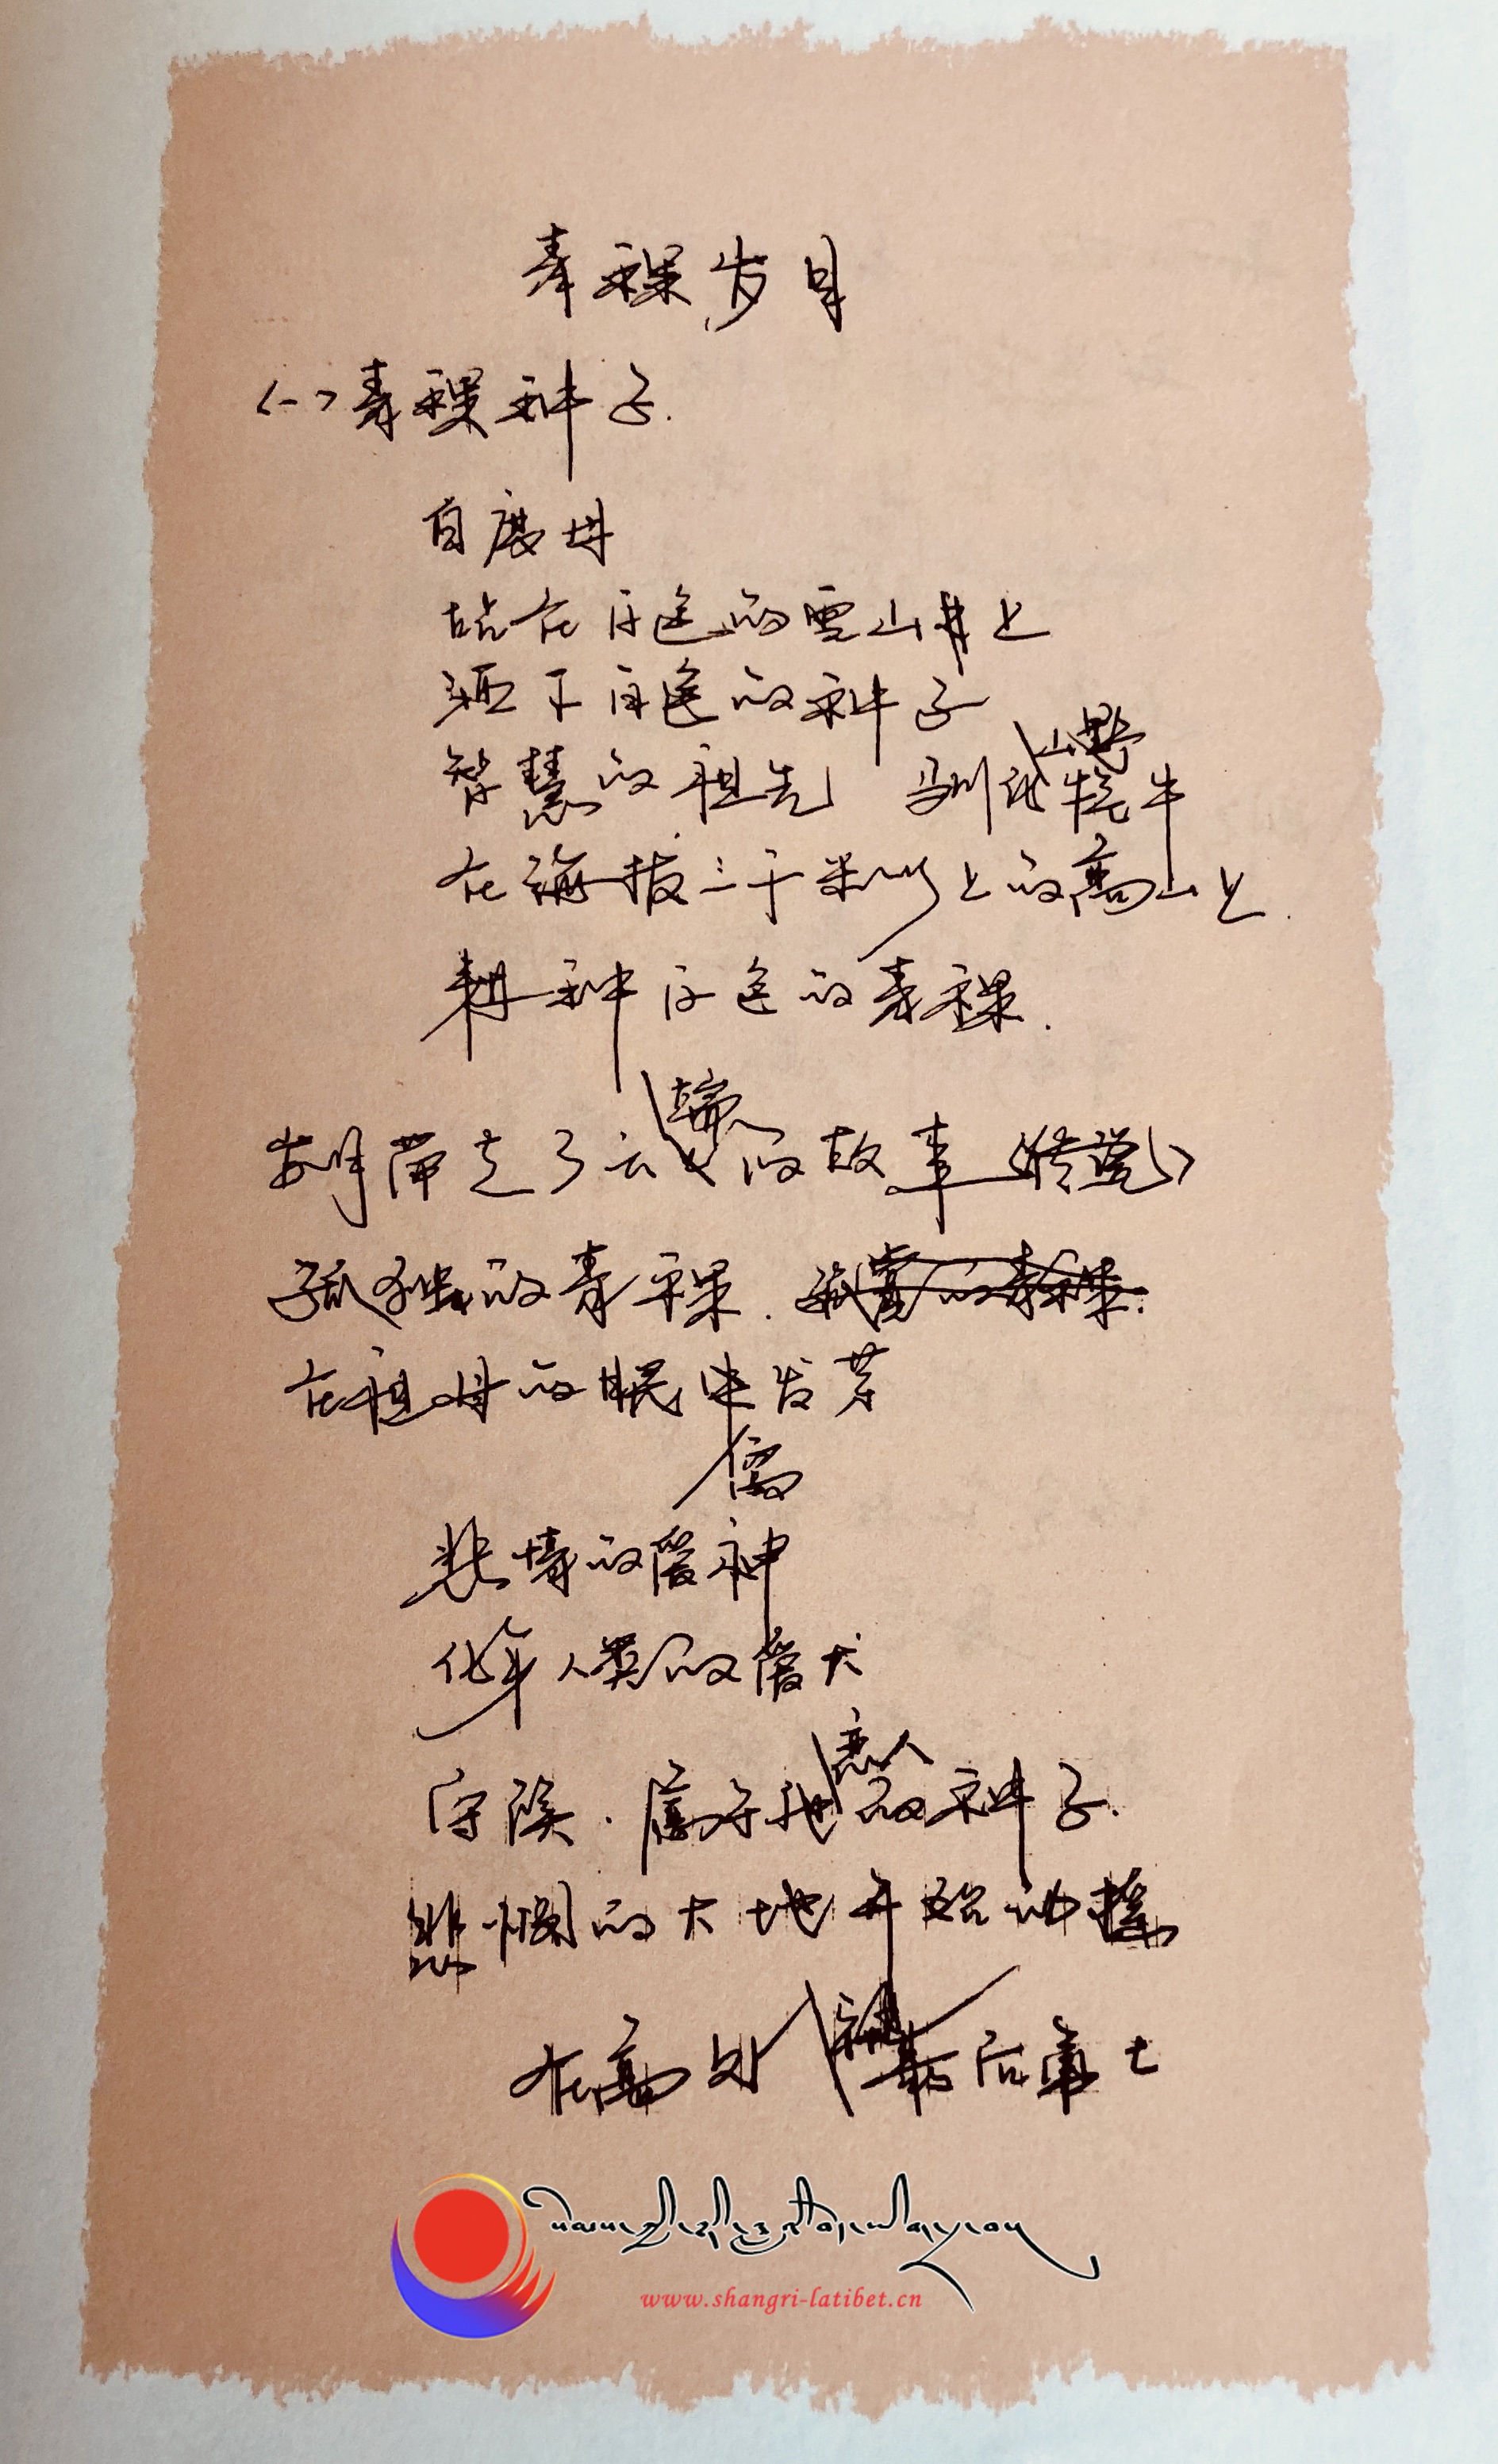 青稞岁月
(一)青稞种子.
白度母
站在白色的雪山井上
洒下白色的种子
山野
智慧的祖先 驯化牦牛
在海拔三千米以上的高山上.
耕种白色的青稞.
岁月带走了的故事(传说)
孤独的青稞.
在祖母的眼中发芽
悲情的神
化身人类的犬
恋人
守候.的种子.
悲悯的大地开始动摇
在高处 最后
www.shangri-latibet.cn